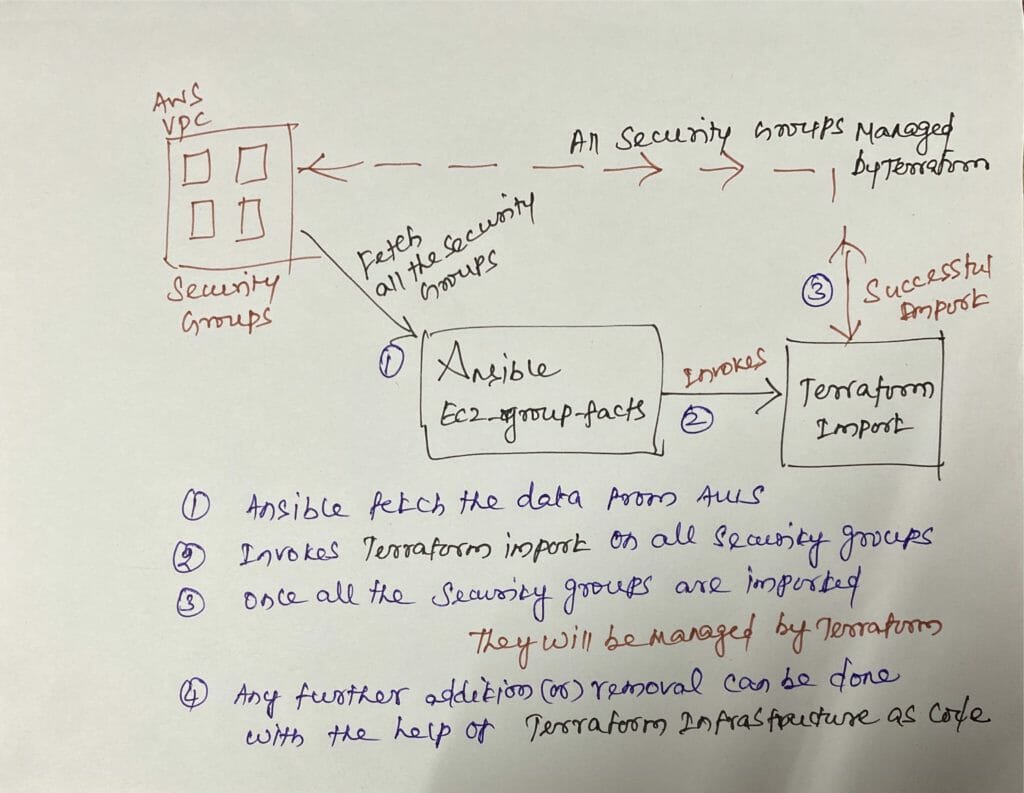 AWS
VPC
All Security Groups Managed
by Terraform
Fetch
all the Security
Groups
Security
Groups
③ Successful
Import
①
Ansible
Ec2-group-facts
Invokes
②
Terraform
Import
① Ansible fetch the data from AWS
② Invokes Terraform import on all Security groups
③ Once all the Security groups are imported
They will be managed by Terraform
④ Any further addition (or) removal can be done
with the help of Terraform Infrastructure as code